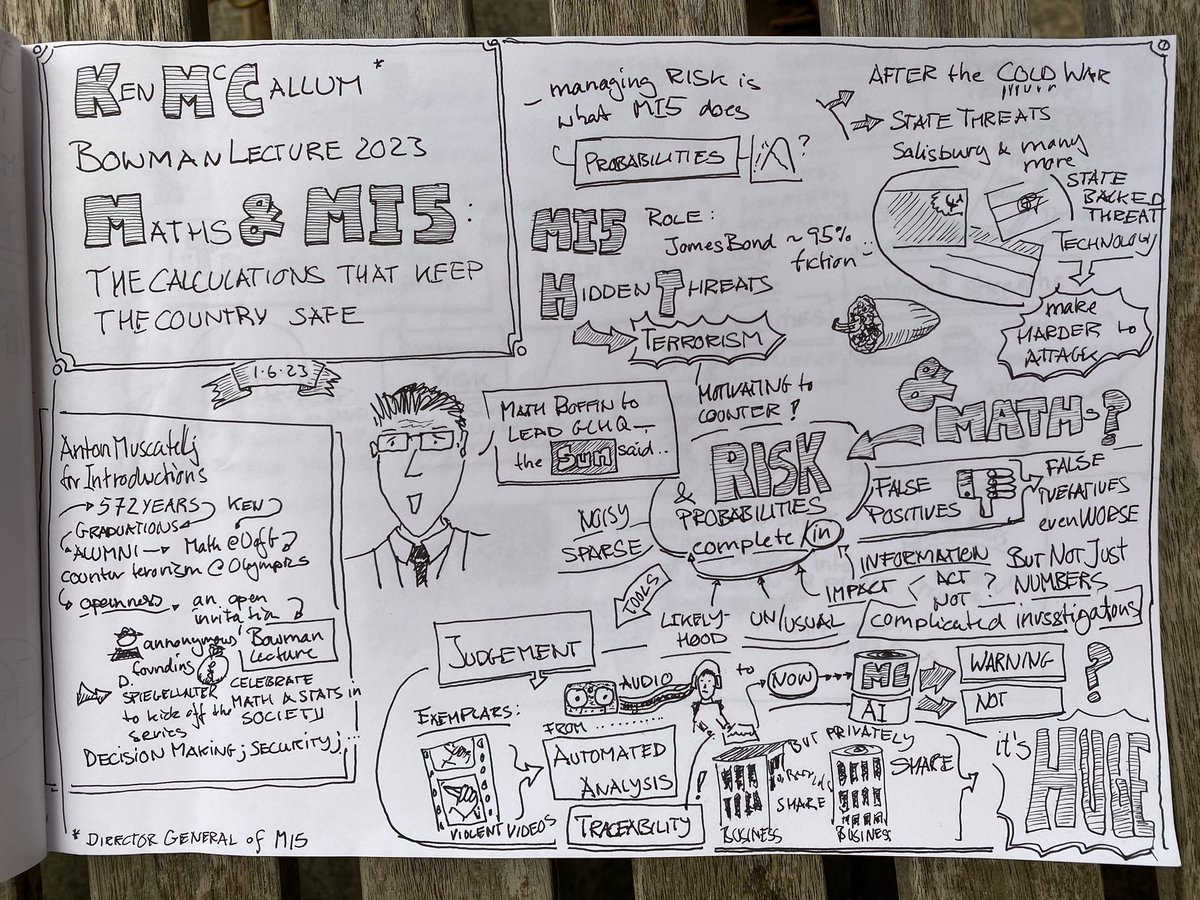 KEN McCALLUM *
BOWMAN LECTURE 2023
MATHS & MI5:
THE CALCULATIONS THAT KEEP
THE COUNTRY SAFE
1.6.23
Anton Muscatelli
for Introductions
572 YEARS KEN
GRADUATIONS
ALUMNI Math @ UofG
counter terorism @ Olympics
openness an open
invitation
annonymous Bowman
Lecture
founding
D. SPIEGELHALTER
to kick off the
series
CELEBRATE
MATH & STATS in
SOCIETY
DECISION MAKING; SECURITY;...
* DIRECTOR GENERAL of MI5
managing RISK is
what MI5 does
PROBABILITIES ?
MI5 ROLE:
James Bond ~ 95%
fiction
HIDDEN THREATS
TERRORISM
AFTER the COLD WAR
STATE THREATS
Salisbury & many
more
STATE
BACKED
THREAT
TECHNOLOGY
make
HARDER to
ATTACK
MATH BOFFIN to
LEAD GCHQ
the Sun said..
MOTIVATING to
COUNTER!
& MATHS?
RISK
& PROBABILITIES
complete /in
NOISY
SPARSE
FALSE
POSITIVES
FALSE
NEGATIVES
even WORSE
INFORMATION
IMPACT < ACT
NOT ?
BUT NOT JUST
NUMBERS
complicated invsstigations
TOOLS
LIKELY-
HOOD
UN/USUAL
JUDGEMENT
EXEMPLARS:
VIOLENT VIDEOS
AUDIO
FROM
to
NOW
ML
AI
WARNING
NOT
?
AUTOMATED
ANALYSIS
TRACEABILITY
!
BUT PRIVATELY
SHARE
SHARE
BUSINESS
BUSINESS
it's
HUGE